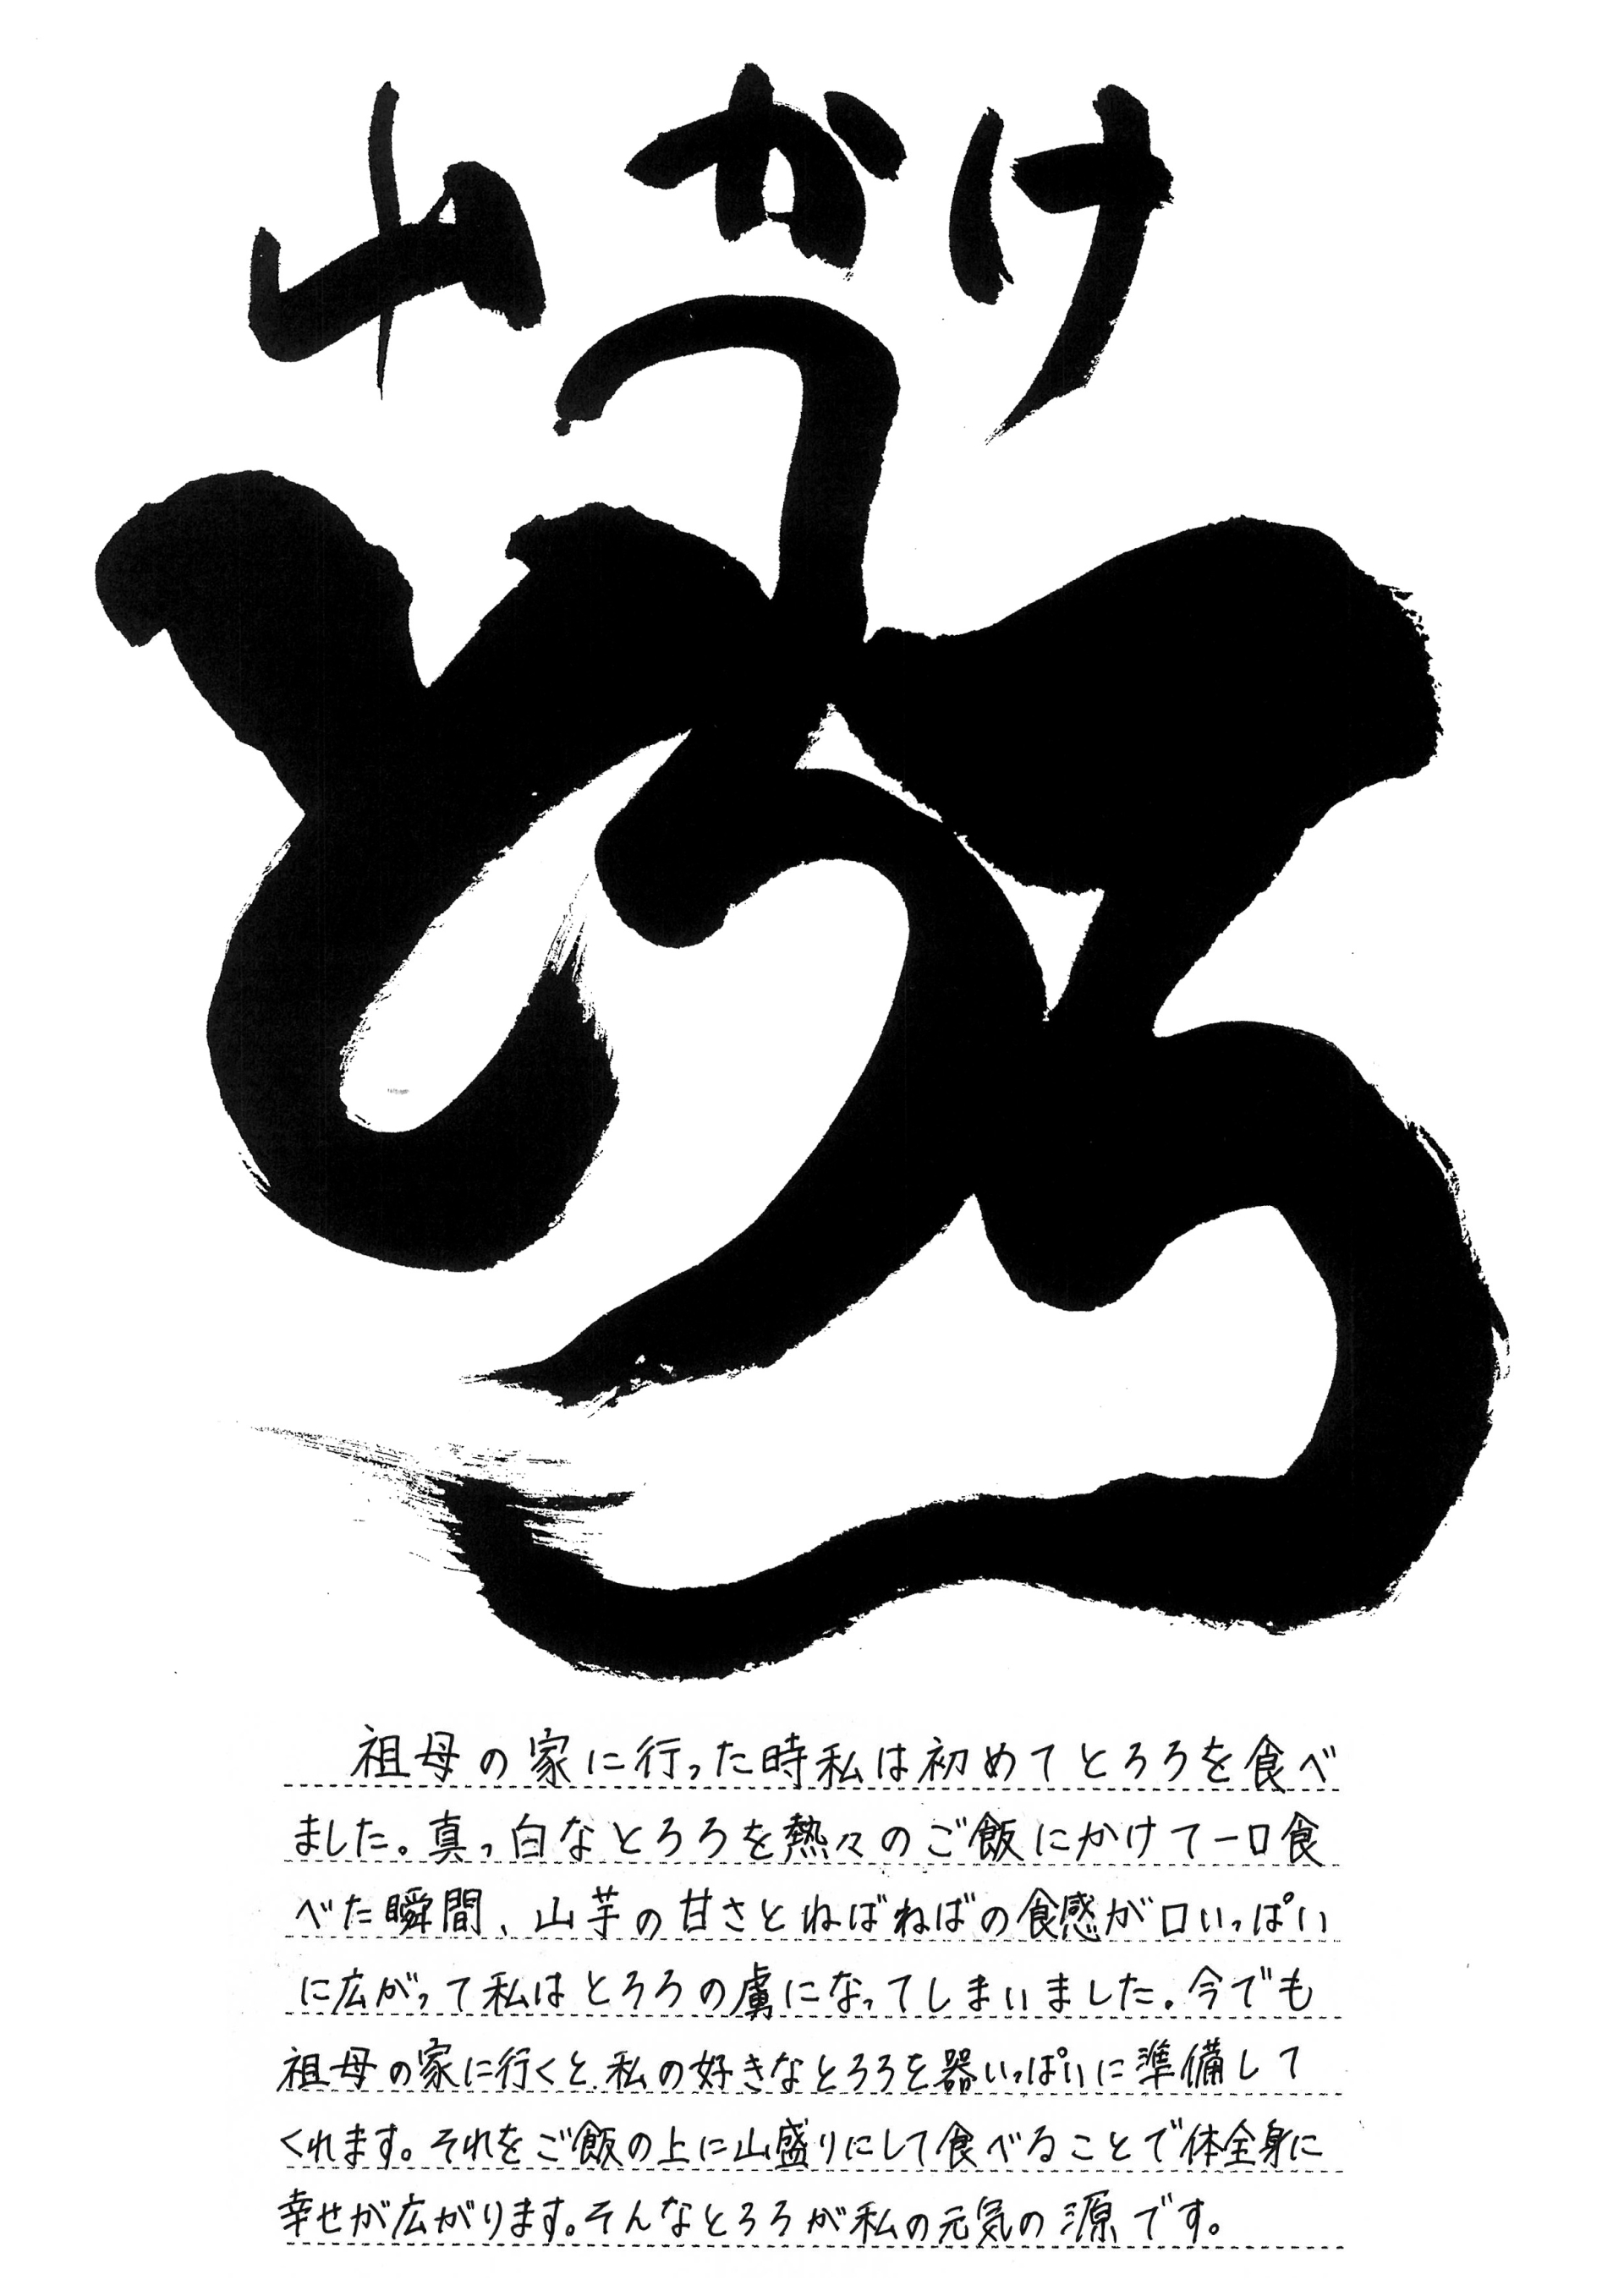 山かけ
とろろ
祖母の家に行った時私は初めてとろろを食べ
ました。真っ白なとろろを熱々のご飯にかけて一口食
べた瞬間、山芋の甘さとねばねばの食感が口いっぱい
に広がって私はとろろの虜になってしまいました。今でも
祖母の家に行くと私の好きなとろろを器いっぱいに準備して
くれます。それをご飯の上に山盛りにして食べることで体全身に
幸せが広がります。そんなとろろが私の元気の源です。